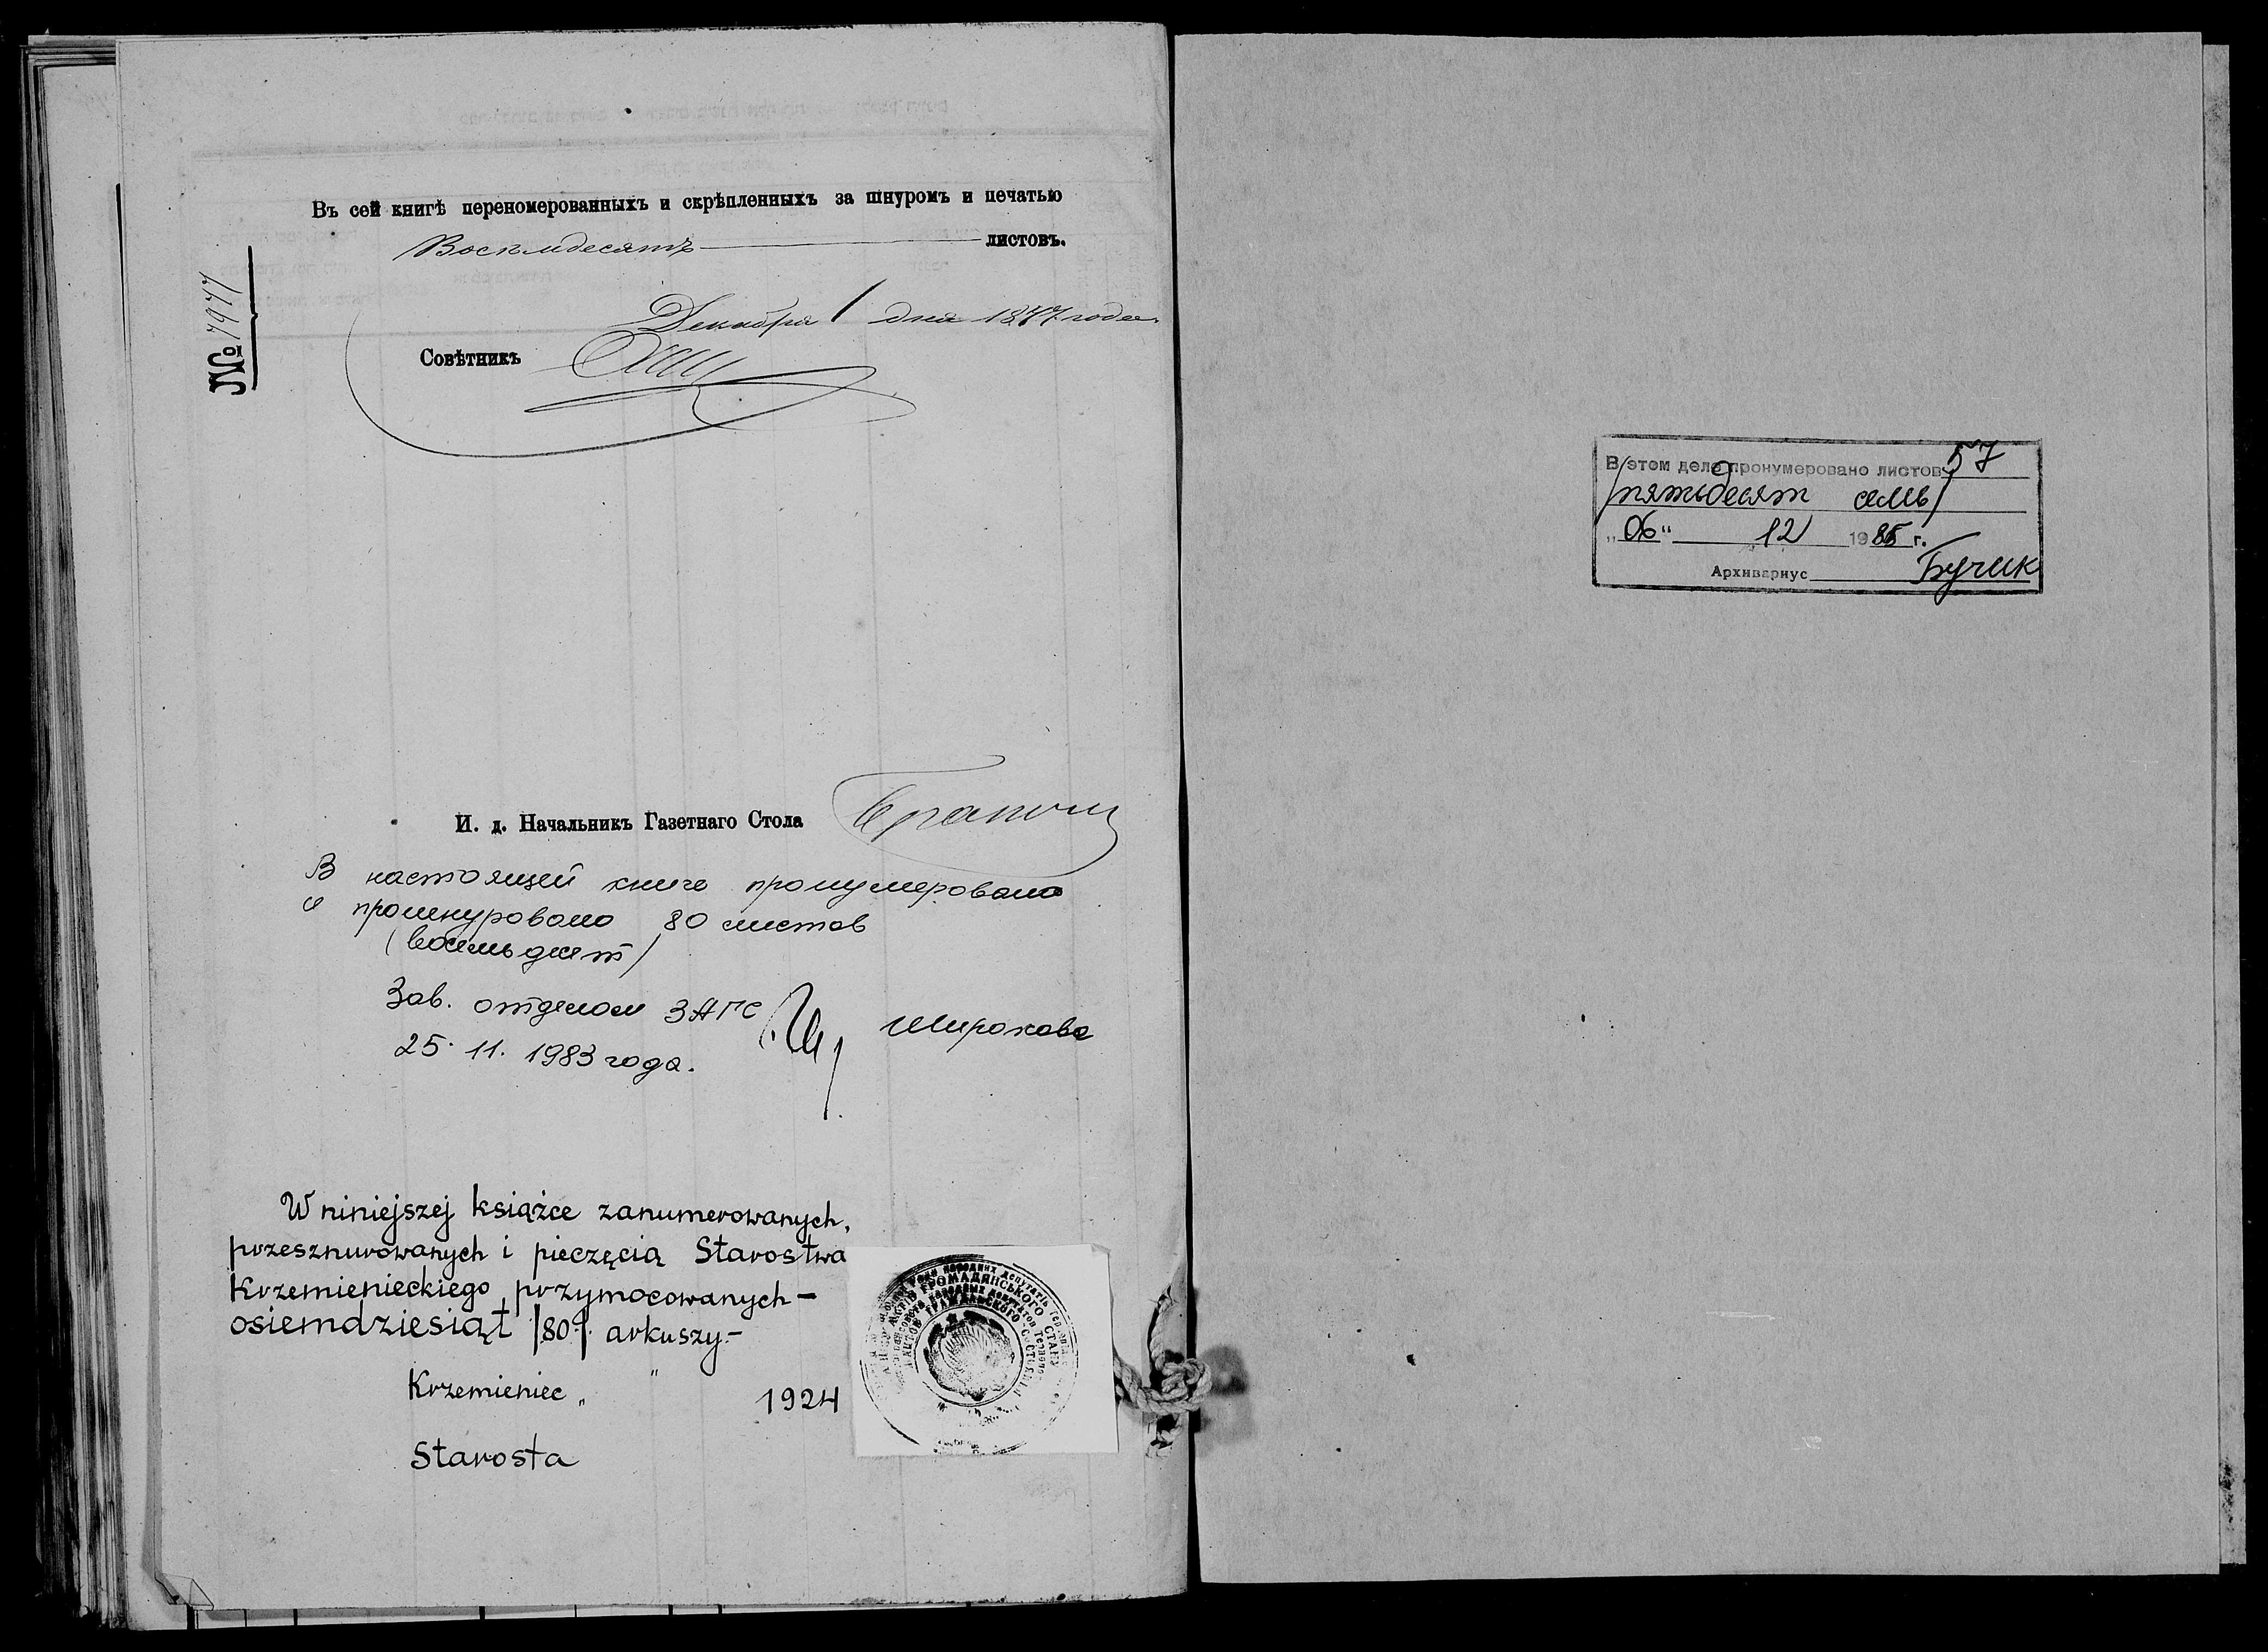 Въ сей книгѣ переномерованныхъ и скрѣпленныхъ за шнуромъ и печатью
Восемдесятъ листовъ.
Декабря 1 дня 1877 года.
№ 7977
Совѣтникъ
И. д. Начальникъ Газетнаго Стола
В настоящей книге пронумеровано
и прошнуровано 80 листов
(восемьдесят)
Зав. отделом ЗАГС Широкова
25. 11. 1983 года.
W niniejszej książce zanumerowanych,
przesznurowanych i pieczęcią Starostwa
Krzemienieckiego przymocowanych—
osiemdziesiąt /80/ arkuszy.—
Krzemieniec „ " 1924
Starosta
народних депутатів
актів громадянського стану
народных депутатов
актов гражданского состояния
В этом деле пронумеровано листов 57
/пятьдесят семь/
„06“ 12 1985 г.
Архивариус Бучик